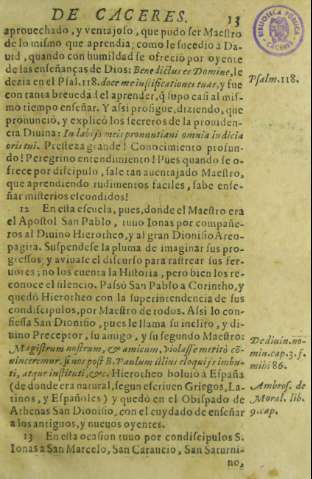 DE CACERES.
13
aprouechado, y ventajoso, que pudo ser Maestro
de lo mismo que aprendia; como le socedió a Da-
uid, quando con humildad se ofrecio por oyente
de las enseñanças de Dios: Benedictus es Domine, le
dezia en el Psal. 118. doce me iustificationes tuas, y fue
con tanta breuedad el aprender, q̃ supo casi al mis-
mo tiempo enseñar. Y assi prosigue, diziendo, que
pronunciò, y explicò los secretos de la prouiden-
cia Diuina: In labijs meis pronuntiaui omnia iudicia
oris tui. Presteza grande! Conocimiento profun-
do! Peregrino entendimiento! Pues quando se o-
frece por discipulo, sale tan auentajado Maestro,
que aprendiendo rudimentos faciles, sabe ense-
ñar misterios escondidos!
12 En esta escuela, pues, donde el Maestro era
el Apostol San Pablo, tuuo Ionas por compañe-
ros al Diuino Hierotheo, y al gran Dionisio Areo-
pagita. Suspendese la pluma de imaginar sus pro-
gressos; y auiuase el discurso para rastrear sus fer-
uores; no los cuenta la Historia, pero bien los re-
conoce el silencio. Passò San Pablo a Corintho, y
quedò Hierotheo con la superintendencia de sus
condiscipulos, por Maestro de todos. Assi lo con-
fiessa San Dionisio, pues le llama su inclito, y di-
uino Preceptor, su amigo, y su segundo Maestro:
Magistrum nostrum, & amicum, violasse meritò cẽ-
sinceremur, si nos post B. Paulum illius eloquijs imbu-
ti, atque instituti, &c. Hierotheo boluiò a España
(de donde era natural, segun escriuen Griegos, La-
tinos, y Españoles) y quedò en el Obispado de
Athenas San Dionisio, con el cuydado de enseñar
a los antiguos, y nueuos oyentes.
13 En esta ocasion tuuo por condiscipulos S.
Ionas a San Marcelo, San Caraucio, San Saturni-
no,
Psalm. 118.
De diuin. no-
min. cap. 3. f.
mihi 86.
Ambros. de
Moral. lib.
9. cap.
BIBLIOTECA PUBLICA
CACERES